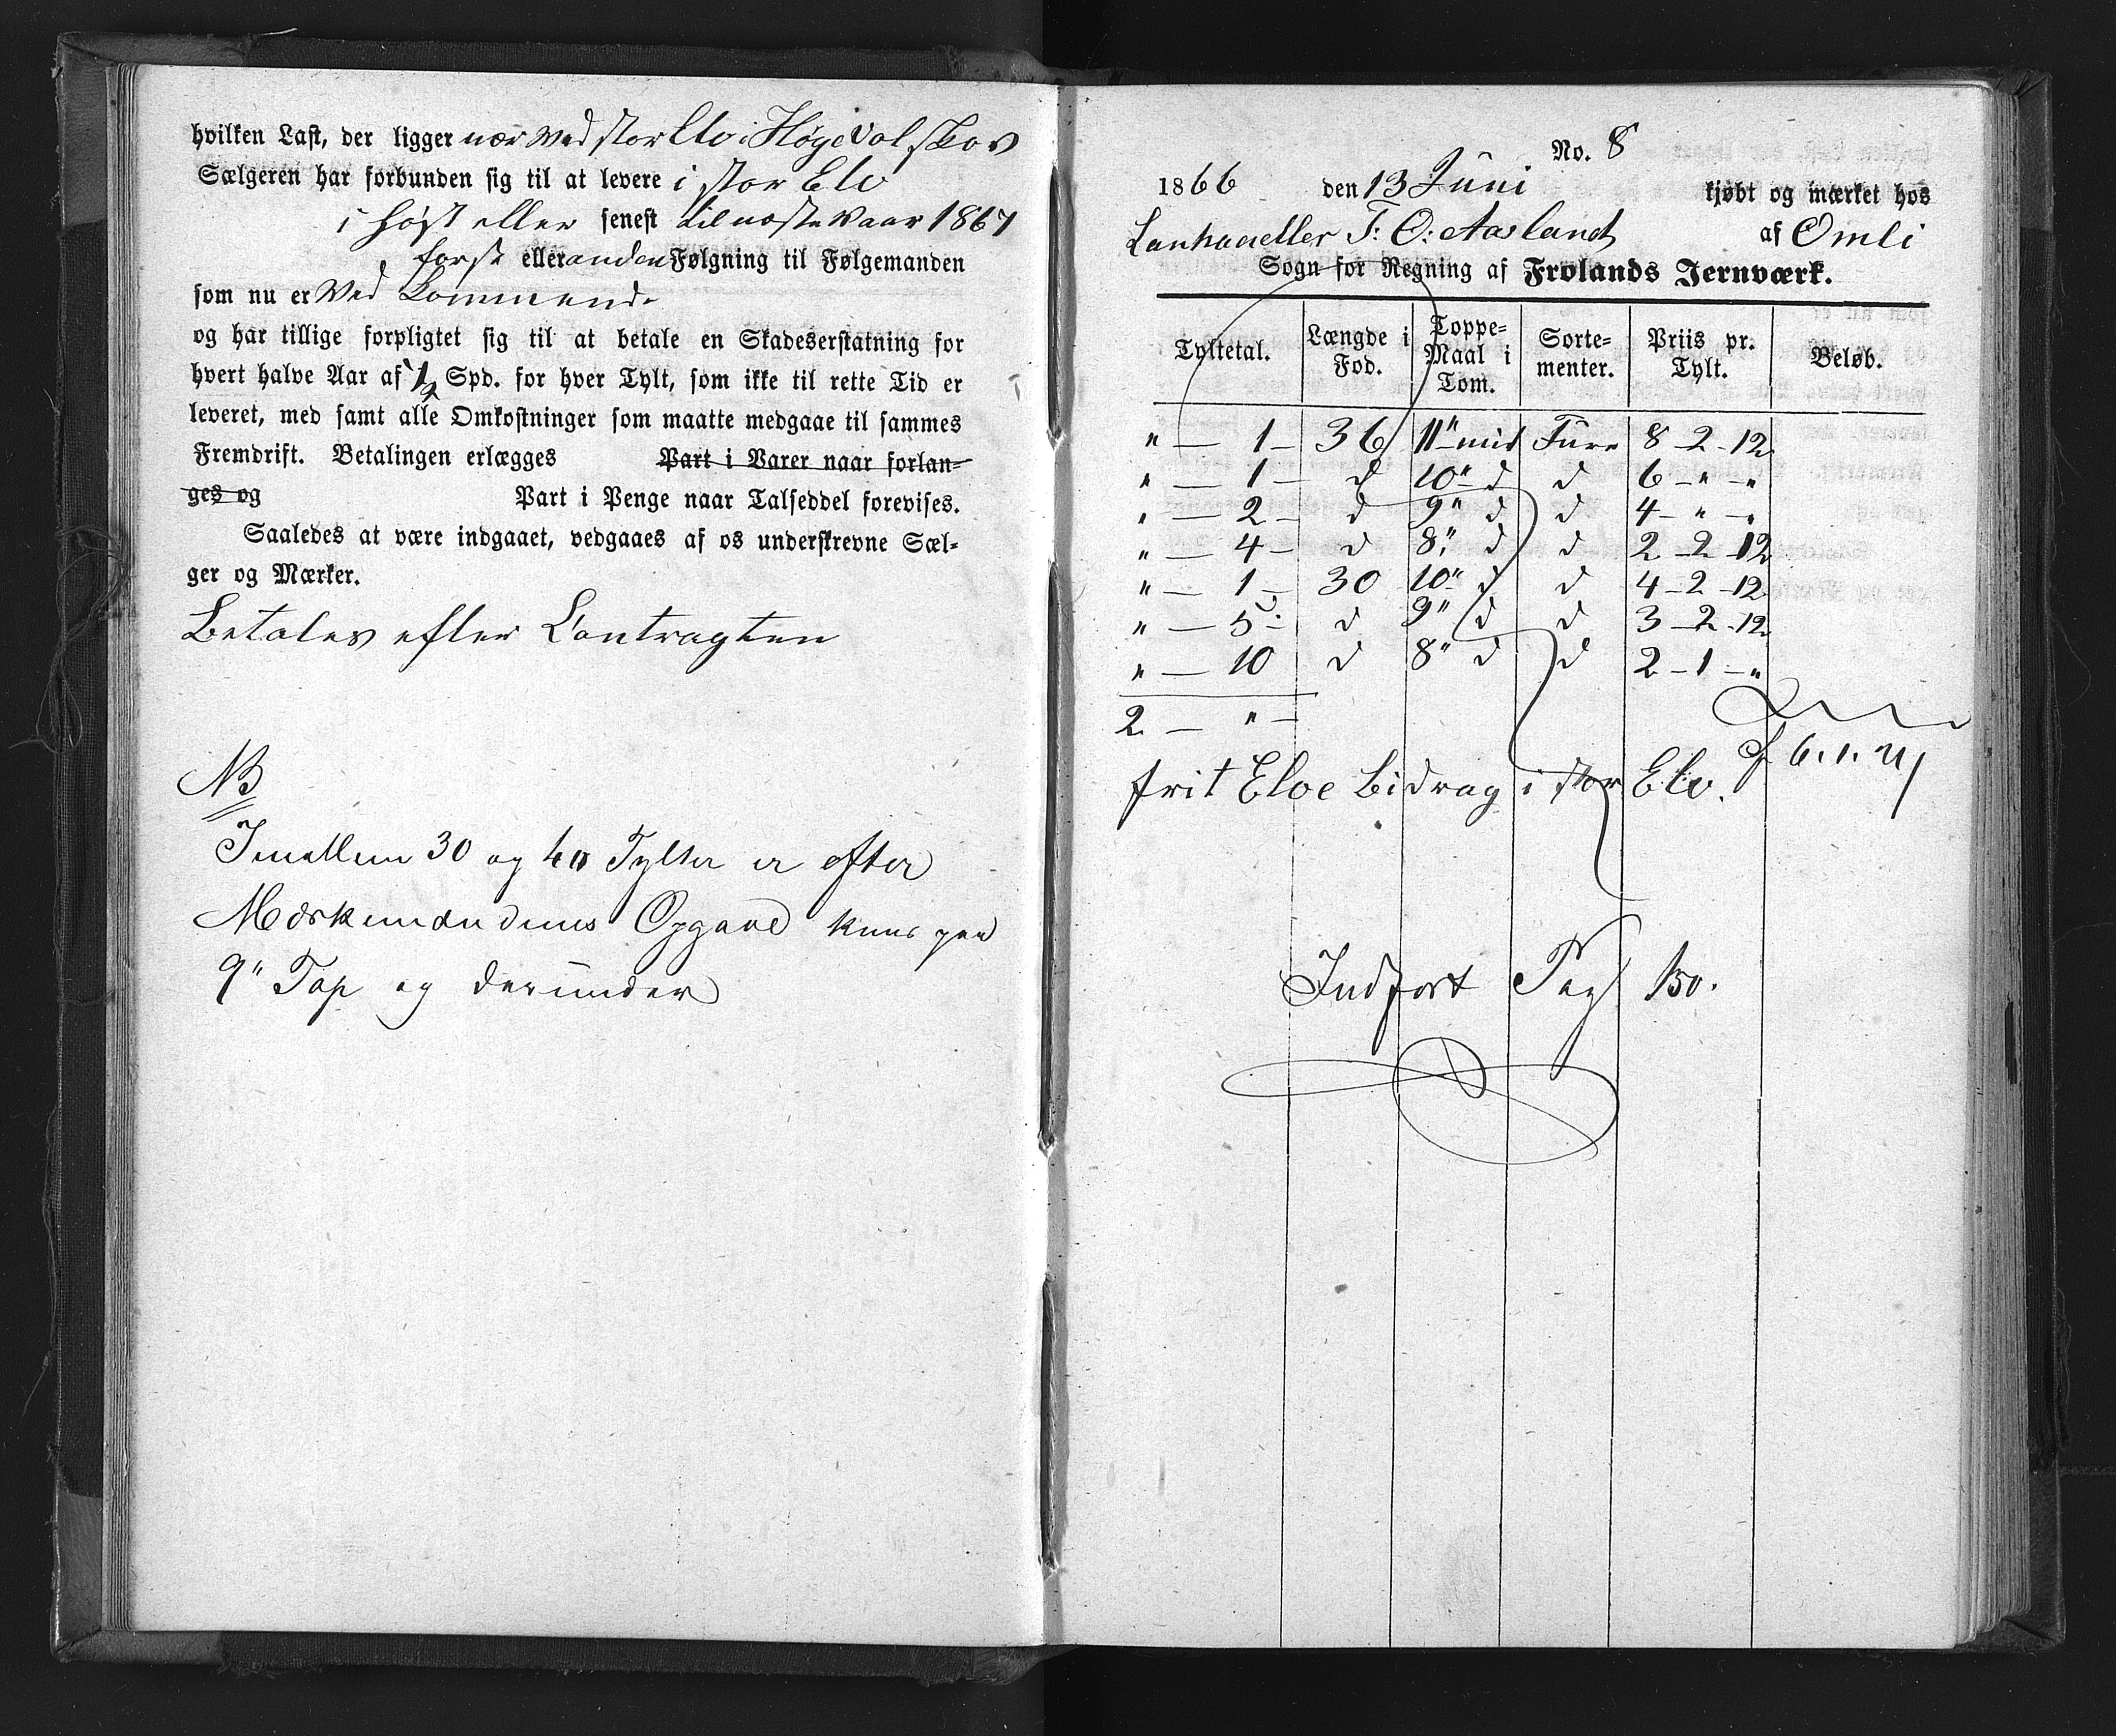 hvilken Last, der ligger nær ved stor Elv i Høgevol skov
Sælgeren har forbunden sig til at levere i stor Elv
i høst eller senest til næste Vaar 1867
først eller anden Følgning til Følgemanden
som nu er Ved Kommende
og har tillige forpligtet sig til at betale en Skadeserstatning for
hvert halve Aar af 1/2 Spd. for hver Tylt, som ikke til rette Tid er
leveret, med samt alle Omkostninger som maatte medgaae til sammes
Fremdrift. Betalingen erlægges Part i Varer naar forlan-
ges og Part i Penge naar Talseddel forevises.
Saaledes at være indgaaet, vedgaaes af os underskrevne Sæl-
ger og Mærker.
Betales efter Contragten
NB
Imellem 30 og 40 Tylter er efter
Opgave kuns paa
9" Top og derunder
No. 8
1866 den 13 Juni kjøbt og mærket hos
T: O: Aasland af Omli
Sogn for Regning af Frolands Jernværk.
Tyltetal. Længde i Fod. Toppe-Maal i Tom. Sorte-menter. Priis pr. Tylt. Beløb.
" — 1 — 36 11" mid Furu 8 - 2 - 12
" — 1 — d 10" d d 6 - " - "
" — 2 — d 9" d d 4 - " - "
" — 4 — d 8" d d 2 - 2 - 12
" — 1 — 30 10" d d 4 - 2 - 12
" — 5 — d 9" d d 3 - 2 - 12
" — 10 d 8" d d 2 - 1 - "
2 — " —
frit Elve bidrag i stor Elv.
Indført Pag 150.